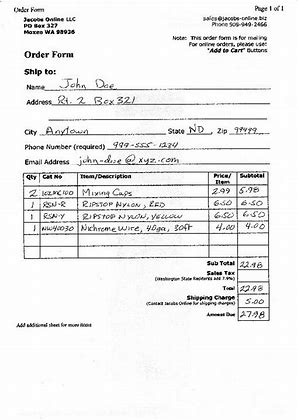 Order Form Page 1 of 1
Jacobs Online LLC sales@jacobs-online.biz
PO Box 327 Phone 509-949-2466
Moxee WA 98936
Note: This order form is for mailing
For online orders, please use:
"Add to Cart" Buttons
Order Form
Ship to:
Name John Doe
Address Rt. 2 Box 321
City Anytown State ND Zip 99999
Phone Number (required) 999-555-1234
Email Address john-doe@xyz.com
Qty Cat No Item/Description Price/Item Subtotal
2 Mixing Cups 2.99 5.98
1 RSN-R RIPSTOP NYLON, RED 6.50 6.50
1 RSN-Y RIPSTOP NYLON, YELLOW 6.50 6.50
1 NW40030 Nichrome Wire, 40ga, 30ft 4.00 4.00
Sub Total 22.98
Sales Tax
(Washington State Residents add 7.9%)
Total 22.98
Shipping Charge
(Contact Jacobs Online for shipping charges) 5.00
Amount Due 27.98
Add additional sheet for more items